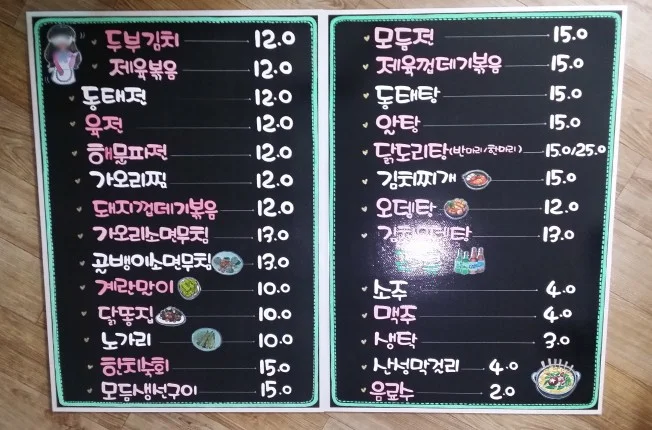 두부김치 12.0
제육볶음 12.0
동태전 12.0
육전 12.0
해물파전 12.0
가오리찜 12.0
돼지껍데기볶음 12.0
가오리소면무침 13.0
골뱅이소면무침 13.0
계란말이 10.0
닭똥집 10.0
노가리 10.0
한치숙회 15.0
모듬생선구이 15.0
모듬전 15.0
제육껍데기볶음 15.0
동태탕 15.0
알탕 15.0
닭도리탕(반마리/한마리) 15.0/25.0
김치찌개 15.0
오뎅탕 12.0
김치오뎅탕 13.0
소주 4.0
맥주 4.0
생탁 3.0
산성막걸리 4.0
음료수 2.0